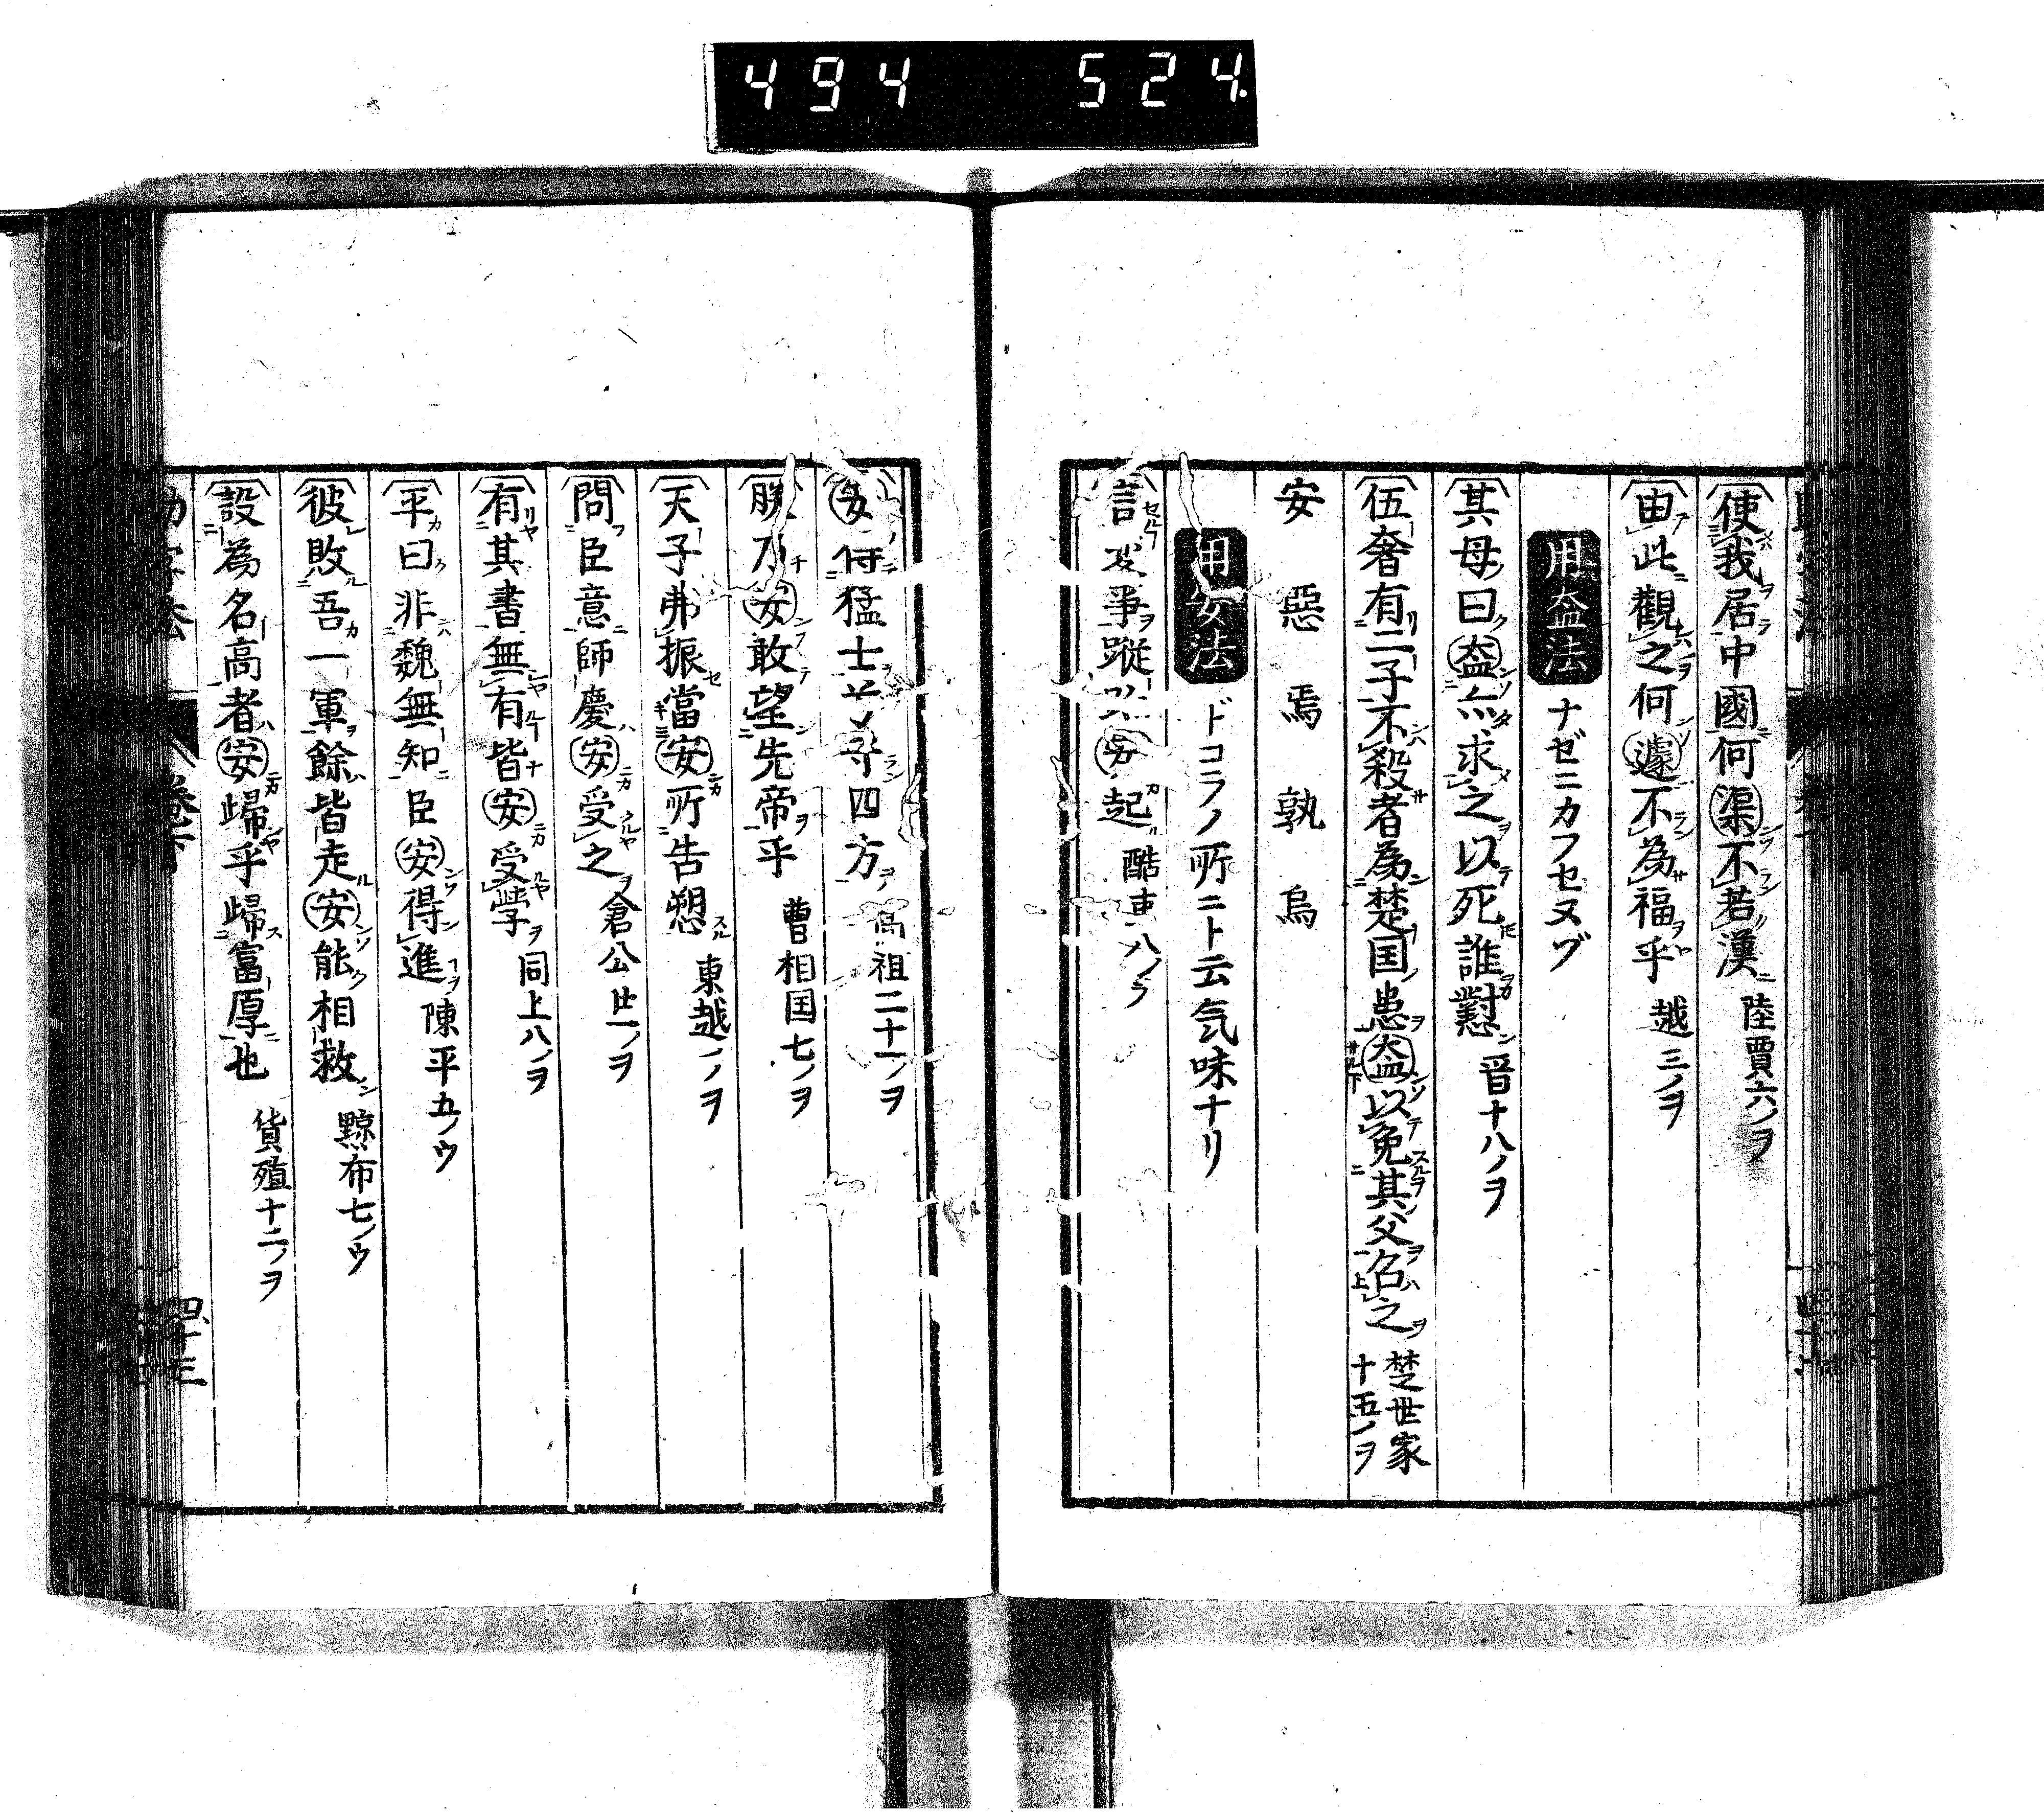 494 524
使我居中國何渠不若漢 陸賈六ノヲ
由此觀之何遽不為福乎 越三ノヲ
用盍法 ナゼニカフセヌヅ
其母曰盍亦求之以死誰懟 晋十八ノヲ
伍奢有二子不殺者為楚国患盍以免其父召之 楚世家十五ノヲ
安 惡 焉 孰 烏
用安法 ドコラノ所ニト云気味ナリ
言変事蹤 安起 酷吏八ノラ
安得猛士 守四方 高祖二十一ノヲ
朕乃安敢望先帝乎 曹相国七ノヲ
天子弗振當安所告愬 東越一ノヲ
問臣意師慶安受之 倉公廿一ノヲ
有其書無有皆安受學 同上八ノヲ
平曰非魏無知臣安得進 陳平五ノウ
彼敗吾一軍餘皆走安能相救 黥布七ノウ
設為名高者安歸乎歸富厚也 貨殖十二ノヲ
卷下
四十三